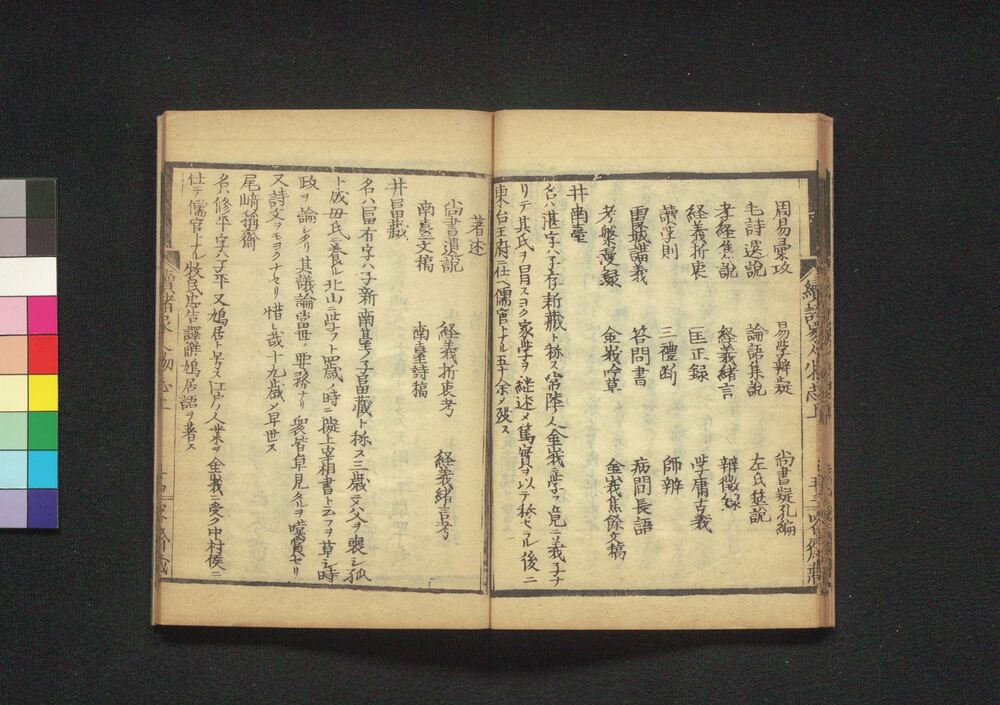 周易彙攷 易学辨疑 尚書疑孔編
毛詩選說 論語集說 左氏筵說
孝経集說 経義緒言 辨徴録
経義折衷 匡正録 学庸古義
讀学則 三禮断 師辨
霞城講義 答問書 病間長語
考槃漫録 金峩吟草 金峩焦餘文稿
井南臺
名ハ湛字ハ子存新藏ト称ス常陸ノ人金峩ニ学フ竟ニ義子ナ
リテ其氏ヲ冒スヨク家学ヲ継述メ篤實ヲ以テ称セラル後ニ
東台王府ニ仕ヘ儒官トナル五十余メ殁ス
著述
尚書遺說 経義折衷考 経義緒言考
南臺文稿 南臺詩稿
井畐藏
名ハ畐有字ハ子新南臺ノ子畐藏ト称ス三歳ニメ父ヲ喪シ孤
ト成毋氏ニ養ル北山ニ学フ十四歳ノ時ニ擬上宰相書ト云フヲ草シ時
政ヲ論シタリ其議論當世ノ要務ナリ衆皆卓見タルヲ嘆賞セリ
又詩文ヲモヨクナセリ惜ト哉十九歳メ早世ス
尾﨑稱齋
名ハ修平字ハ子平又鳩居ト号ス江戸ノ人業ヲ金峩ニ受ク中村侯ニ
仕テ儒官トナル牧民忠告譯解鳩居語ヲ着ス
續諸家人物志上